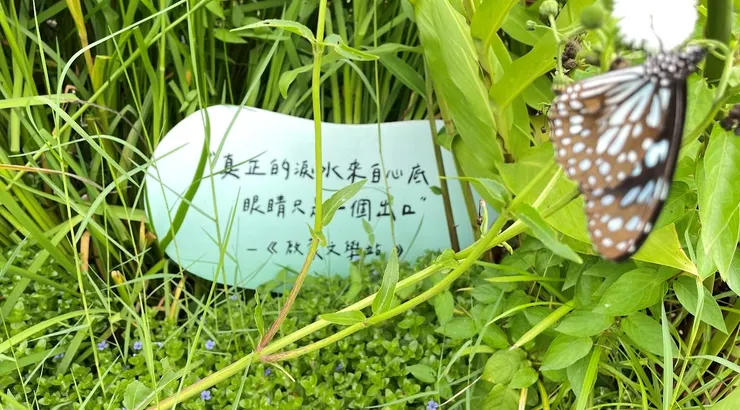 真正的淚水來自心底
眼睛只是一個出口”
—《 文學站 》